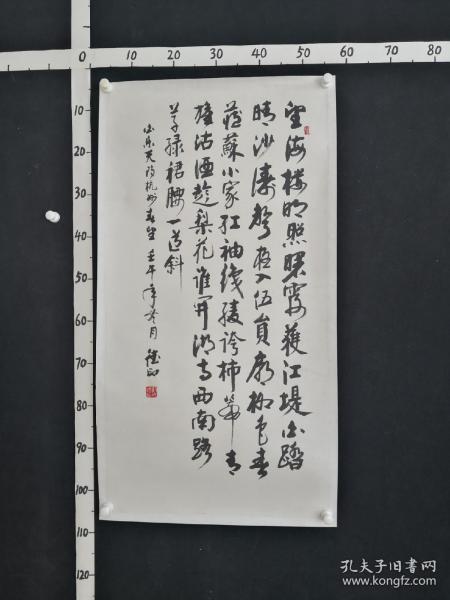 0 10 20 30 40 50 60 70 80
10
20
30
40
50
60
70
80
90
100
110
120
望海楼明照曙霞護江堤白踏
晴沙濤聲夜入伍員廟柳色春
藏蘇小家红袖织綾誇柿蒂青
旗沽酒趁梨花誰開湖寺西南路
草绿裙腰一道斜
白乐天诗杭州春望 壬午年冬月
孔夫子旧书网
www.kongfz.com